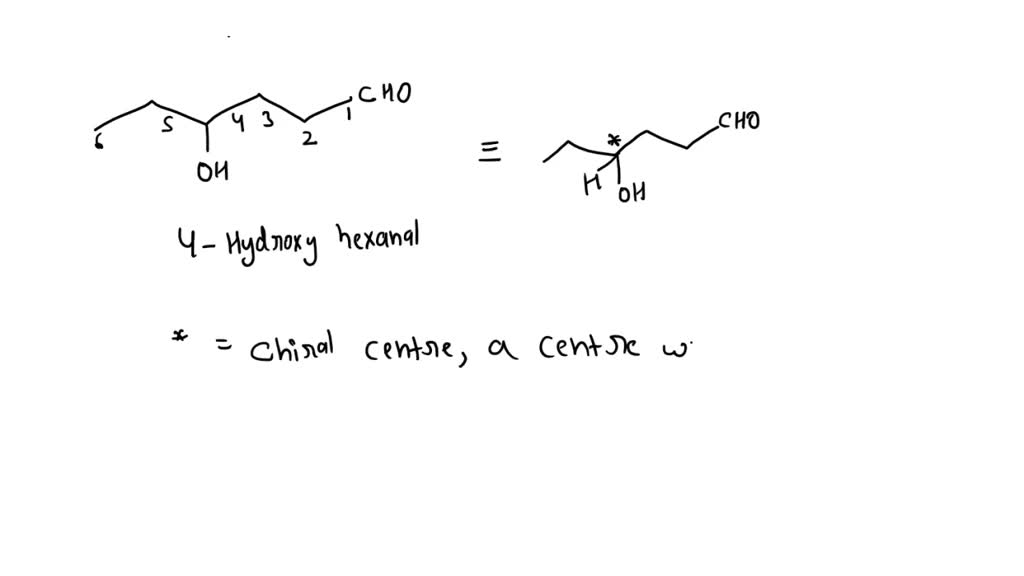 CHO
6 5 4 3 2 1
OH
≡
* CHO
H OH
4 - Hydroxy hexanal
* = Chiral centre, a centre w